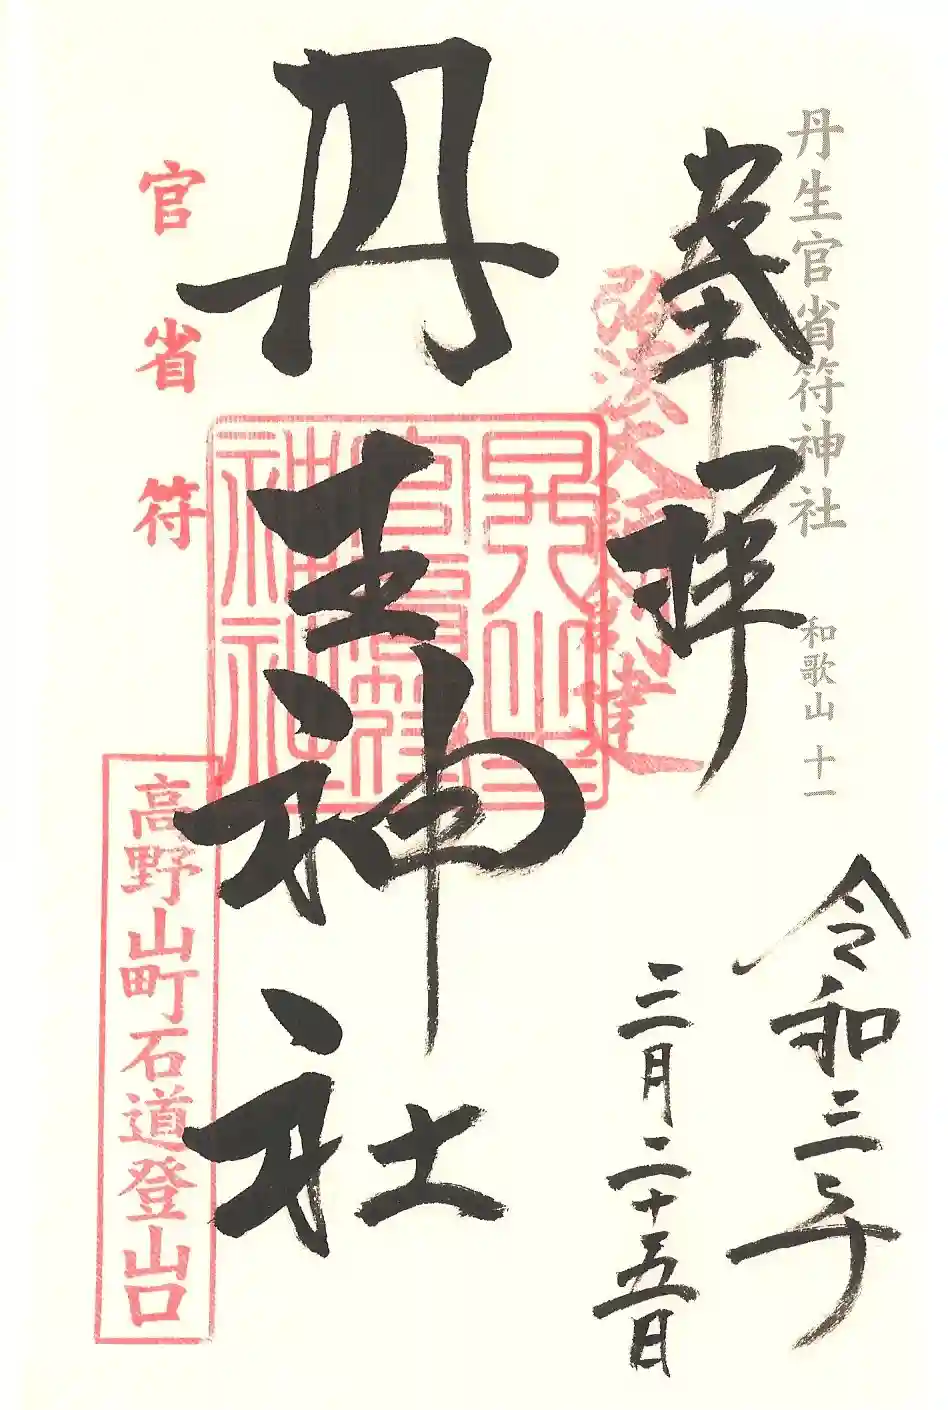 丹生官省符神社 和歌山 十一
奉拝
令和三年
三月二十五日
弘法大師
建
丹生神社
官省符
神社
官省符
高野山町石道登山口